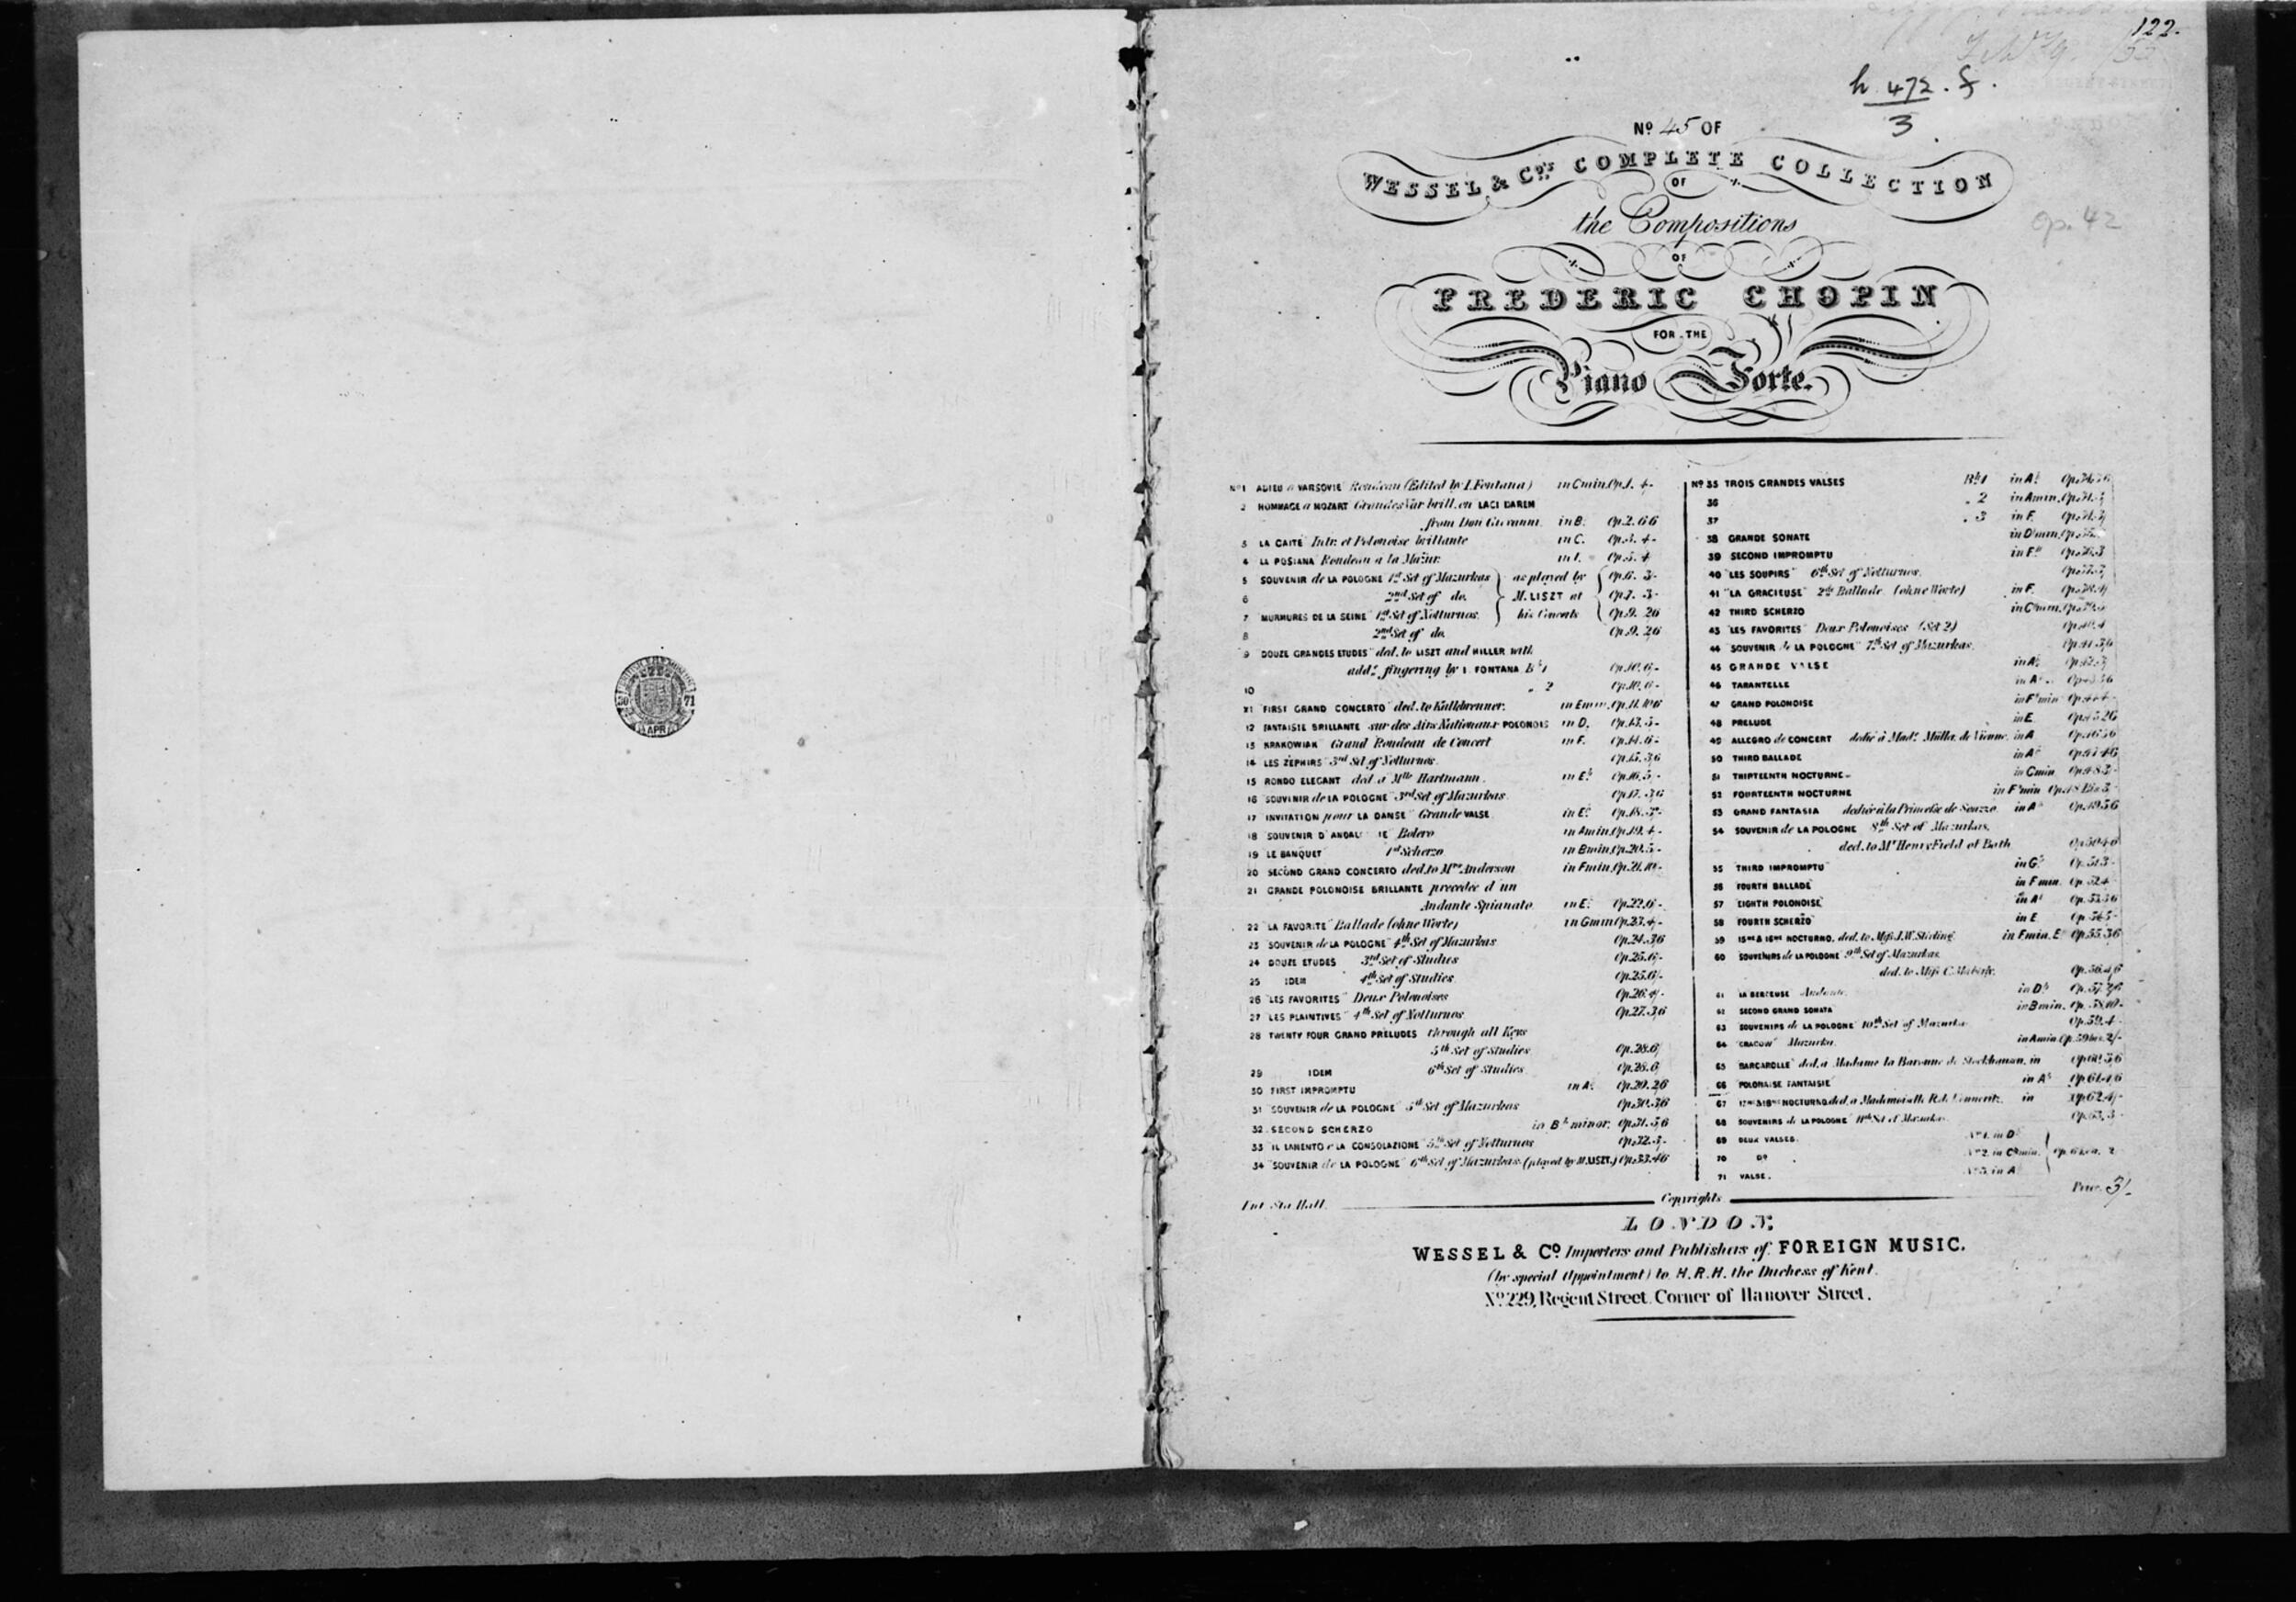 122.
h. 472. f.
3
Nº 45 OF
WESSEL & Cº'S COMPLETE COLLECTION
OF
the Compositions
Op. 42
OF
FREDERIC CHOPIN
FOR THE
Piano Forte.
Nº 1 ADIEU a VARSOVIE Rondeau (Edited by I. Fontana) in C min. Op. 1. 4-
2 HOMMAGE a MOZART Grandes Var brill. on LACI DAREM
from Don Giovanni. in B. Op. 2. 6 6
3 LA GAITÉ Intr. et Polonoise brillante in C. Op. 3. 4-
4 LA POSIANA Rondeau a la Mazur. Op. 5. 4
5 SOUVENIR de LA POLOGNE 1st Set of Mazurkas as played by Op. 6. 3-
6 2nd Set of do. M. LISZT at Op. 7. 3-
7 MURMURES DE LA SEINE 1st Set of Notturnos his Concerts Op. 9. 26
8 2nd Set of do. Op. 9. 26
9 DOUZE GRANDES ETUDES ded. to LISZT and HILLER with
add. fingering by I. FONTANA Bk 1 Op. 10. 6-
10 " 2 Op. 10. 6-
11 FIRST GRAND CONCERTO ded. to Kalkbrenner. in E min. Op. 11. 10 6
12 FANTAISIE BRILLANTE sur des Airs Nationaux POLONOIS in D. Op. 13. 5-
13 KRAKOWIAK Grand Rondeau de Concert in F. Op. 14. 6-
14 LES ZEPHIRS 3rd Set of Notturnos. Op. 15. 36
15 RONDO ELEGANT ded. a Mlle Hartmann. in Eb Op. 16. 5-
16 SOUVENIR de LA POLOGNE 3rd Set of Mazurkas. Op. 17. 36
17 INVITATION pour LA DANSE Grande VALSE in Eb Op. 18. 3-
18 SOUVENIR D'ANDAL IE Bolero in A min. Op. 19. 4-
19 LE BANQUET 1st Scherzo in B min. Op. 20. 5-
20 SECOND GRAND CONCERTO ded. to Mrs Anderson in F min. Op. 21. 10-
21 GRANDE POLONOISE BRILLANTE precedee d'un
Andante Spianato. in Eb Op. 22. 6-
22 LA FAVORITE Ballade (ohne Worte) in G min Op. 23. 4-
23 SOUVENIR de LA POLOGNE 4th Set of Mazurkas Op. 24. 36
24 DOUZE ETUDES 3rd Set of Studies Op. 25. 6/-
25 IDEM 4th Set of Studies. Op. 25. 6/-
26 LES FAVORITES Deux Polonoises Op. 26. 4/-
27 LES PLAINTIVES 4th Set of Notturnos. Op. 27. 36
28 TWENTY FOUR GRAND PRELUDES through all Keys
5th Set of Studies Op. 28. 6/
29 IDEM 6th Set of Studies. Op. 28. 6/
30 FIRST IMPROMPTU in Ab Op. 29. 26
31 SOUVENIR de LA POLOGNE 5th Set of Mazurkas Op. 30. 36
32 SECOND SCHERZO in Bb minor. Op. 31. 56
33 IL LAMENTO e LA CONSOLAZIONE 5th Set of Notturnos Op. 32. 3-
34 SOUVENIR de LA POLOGNE 6th Set of Mazurkas (played by M. LISZT.) Op. 33. 46
Nº 35 TROIS GRANDES VALSES Bk 1 in Ab Op. 34. 36
36 . 2 in A min. Op. 34. 3
37 . 3 in F. Op. 34. 3
38 GRANDE SONATE
39 SECOND IMPROMPTU in F# Op. 36. 3
40 "LES SOUPIRS" 6th Set of Notturnos. Op. 37. 3
41 "LA GRACIEUSE" 2de Ballade (ohne Worte) in F. Op. 38. 4/
42 THIRD SCHERZO in C# min. Op. 39.
43 "LES FAVORITES" Deux Polonoises (Set 2) Op. 40. 4
44 SOUVENIR de LA POLOGNE 7th Set of Mazurkas. Op. 41. 36
45 GRANDE VALSE in Ab Op. 42. 3
46 TARANTELLE in Ab Op. 43. 36
47 GRAND POLONOISE in F# min Op. 44. 4-
48 PRELUDE in E. Op. 45. 26
49 ALLEGRO de CONCERT dedié à Madle Müller de Vienne. in A Op. 46. 56
50 THIRD BALLADE in Ab Op. 47. 46
51 THIRTEENTH NOCTURNE in C min. Op. 48. 3-
52 FOURTEENTH NOCTURNE in F# min Op. 48 Bis 3-
53 GRAND FANTASIA dediée à la Princesse de Souzzo. in Ab Op. 49. 56
54 SOUVENIR de LA POLOGNE 8th Set of Mazurkas.
ded. to Mr Henry Field of Bath Op. 50. 46
55 THIRD IMPROMPTU in Gb Op. 51. 3-
56 FOURTH BALLADE in F min. Op. 52. 4
57 EIGHTH POLONOISE in Ab Op. 53. 36
58 FOURTH SCHERZO in E Op. 54. 5-
59 15me & 16me NOCTURNO. ded. to Miss J.W. Stirling. in F min. Eb Op. 55. 36
60 SOUVENIRS de LA POLOGNE 9th Set of Mazurkas.
ded. to Miss C. Maberly. Op. 56. 46
61 LA BERCEUSE Andante. in Db Op. 57. 26
62 SECOND GRAND SONATA in B min. Op. 58. 10-
63 SOUVENIRS de LA POLOGNE 10th Set of Mazurka Op. 59. 4-
64 CRACOW Mazurka. in A min Op. 59 bis. 2/-
65 BARCAROLLE ded. a Madame la Baronne de Stockhausen. in Op. 60. 36
66 POLONAISE FANTAISIE in Ab Op. 61. 46
67 17me & 18me NOCTURNO. ded. a Mademoiselle R. de Konneritz. in Op. 62. 4/-
68 SOUVENIRS de LA POLOGNE 11th Set of Mazurkas. Op. 63. 3
69 DEUX VALSES. Nº 1. in Db
70 Dº . Nº 2. in C# min. Op. 64 ea. 2
71 VALSE. Nº 3. in A
Price. 3/-
Ent. Sta. Hall. Copyrights
LONDON,
WESSEL & Cº Importers and Publishers of FOREIGN MUSIC.
(by special Appointment) to H.R.H. the Duchess of Kent.
Nº 229, Regent Street, Corner of Hanover Street.